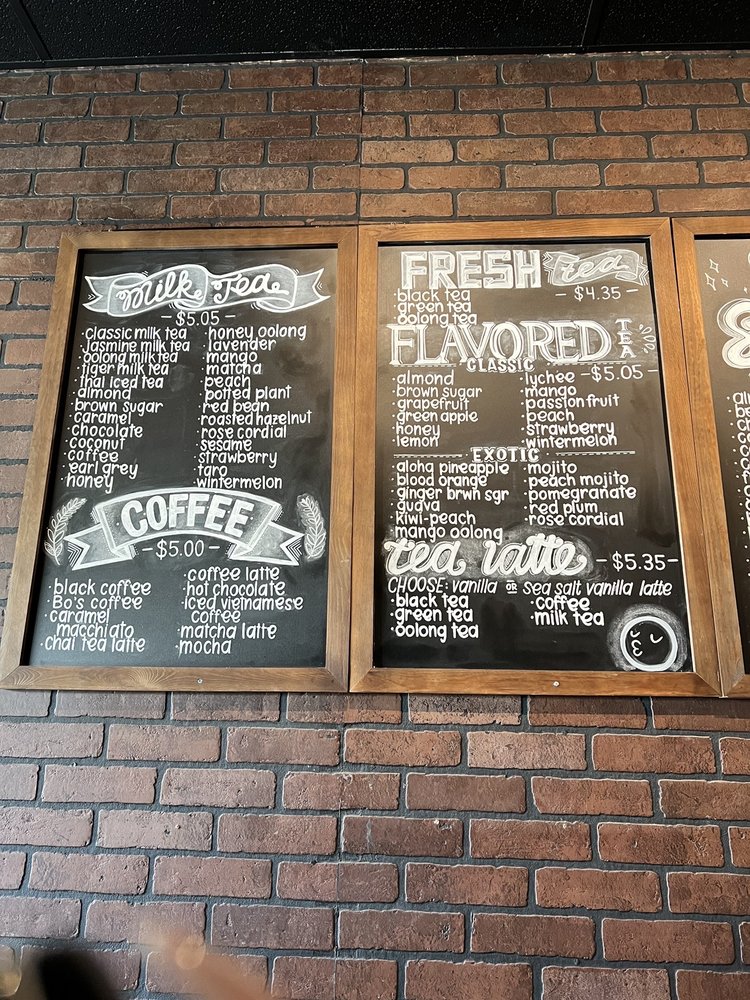 Milk Tea
- $5.05 -
· classic milk tea
· jasmine milk tea
· oolong milk tea
· tiger milk tea
· thai iced tea
· almond
· brown sugar
· caramel
· chocolate
· coconut
· coffee
· earl grey
· honey
· honey oolong
· lavender
· mango
· matcha
· peach
· potted plant
· red bean
· roasted hazelnut
· rose cordial
· sesame
· strawberry
· taro
· wintermelon
COFFEE
- $5.00 -
· black coffee
· Bo's coffee
· caramel
macchiato
· chai tea latte
· coffee latte
· hot chocolate
· iced vietnamese
coffee
· matcha latte
· mocha
FRESH tea
- $4.35 -
· black tea
· green tea
· oolong tea
FLAVORED TEA
CLASSIC
- $5.05 -
· almond
· brown sugar
· grapefruit
· green apple
· honey
· lemon
· lychee
· mango
· passion fruit
· peach
· strawberry
· wintermelon
EXOTIC
· aloha pineapple
· blood orange
· ginger brwn sgr
· guava
· kiwi-peach
· mango oolong
· mojito
· peach mojito
· pomegranate
· red plum
· rose cordial
tea latte - $5.35 -
CHOOSE: vanilla OR sea salt vanilla latte
· black tea
· green tea
· oolong tea
· coffee
· milk tea